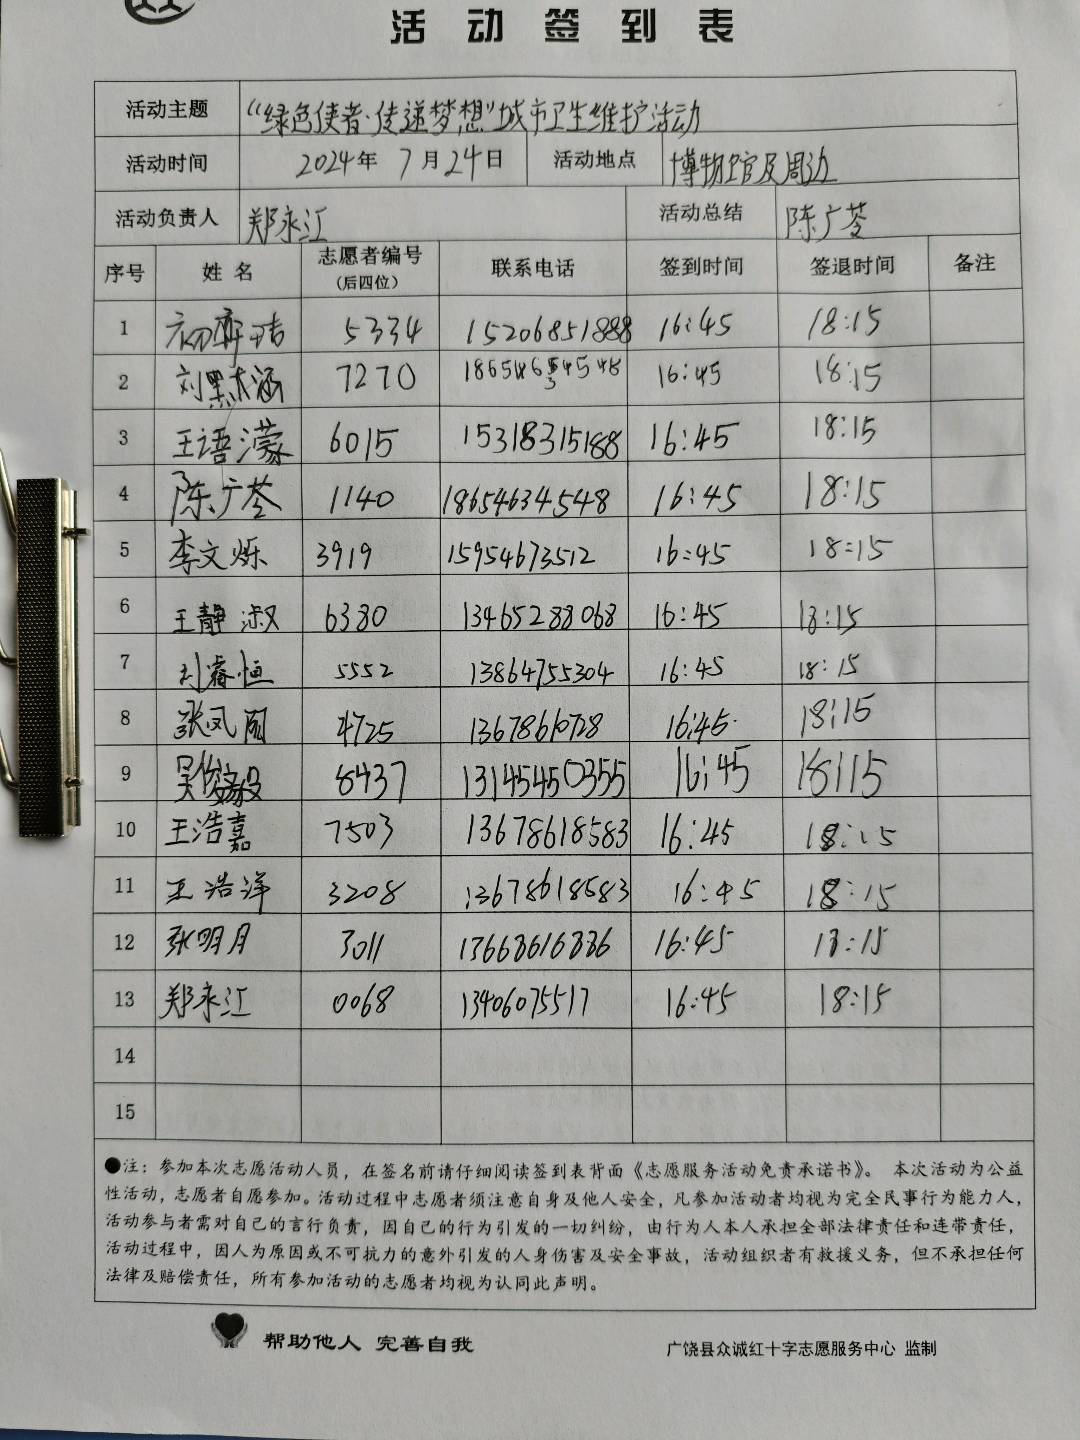 活动签到表
活动主题 “绿色使者·传递梦想”城市卫生维护活动
活动时间 2024年7月24日 活动地点 博物馆及周边
活动负责人 郑永江 活动总结 陈广苓
序号 姓名 志愿者编号(后四位) 联系电话 签到时间 签退时间 备注
1 5334 15206851888 16:45 18:15
2 7270 16:45 18:15
3 王语濛 6015 15318315188 16:45 18:15
4 陈广苓 1140 18654634548 16:45 18:15
5 李文烁 3919 15954673512 16:45 18:15
6 王静淑 6380 13465288068 16:45 18:15
7 刘睿恒 5552 13864755304 16:45 18:15
8 张凤丽 4725 13678610728 16:45 18:15
9 吴俊毅 8437 13145450355 16:45 18:15
10 王浩嘉 7503 13678618583 16:45 18:15
11 王浩洋 3208 13678618583 16:45 18:15
12 张明月 3011 13668616886 16:45 18:15
13 郑永江 0068 13406075517 16:45 18:15
14
15
●注：参加本次志愿活动人员，在签名前请仔细阅读签到表背面《志愿服务活动免责承诺书》。本次活动为公益
性活动，志愿者自愿参加。活动过程中志愿者须注意自身及他人安全，凡参加活动者均视为完全民事行为能力人，
活动参与者需对自己的言行负责，因自己的行为引发的一切纠纷，由行为人本人承担全部法律责任和连带责任，
活动过程中，因人为原因或不可抗力的意外引发的人身伤害及安全事故，活动组织者有救援义务，但不承担任何
法律及赔偿责任，所有参加活动的志愿者均视为认同此声明。
帮助他人 完善自我
广饶县众诚红十字志愿服务中心 监制